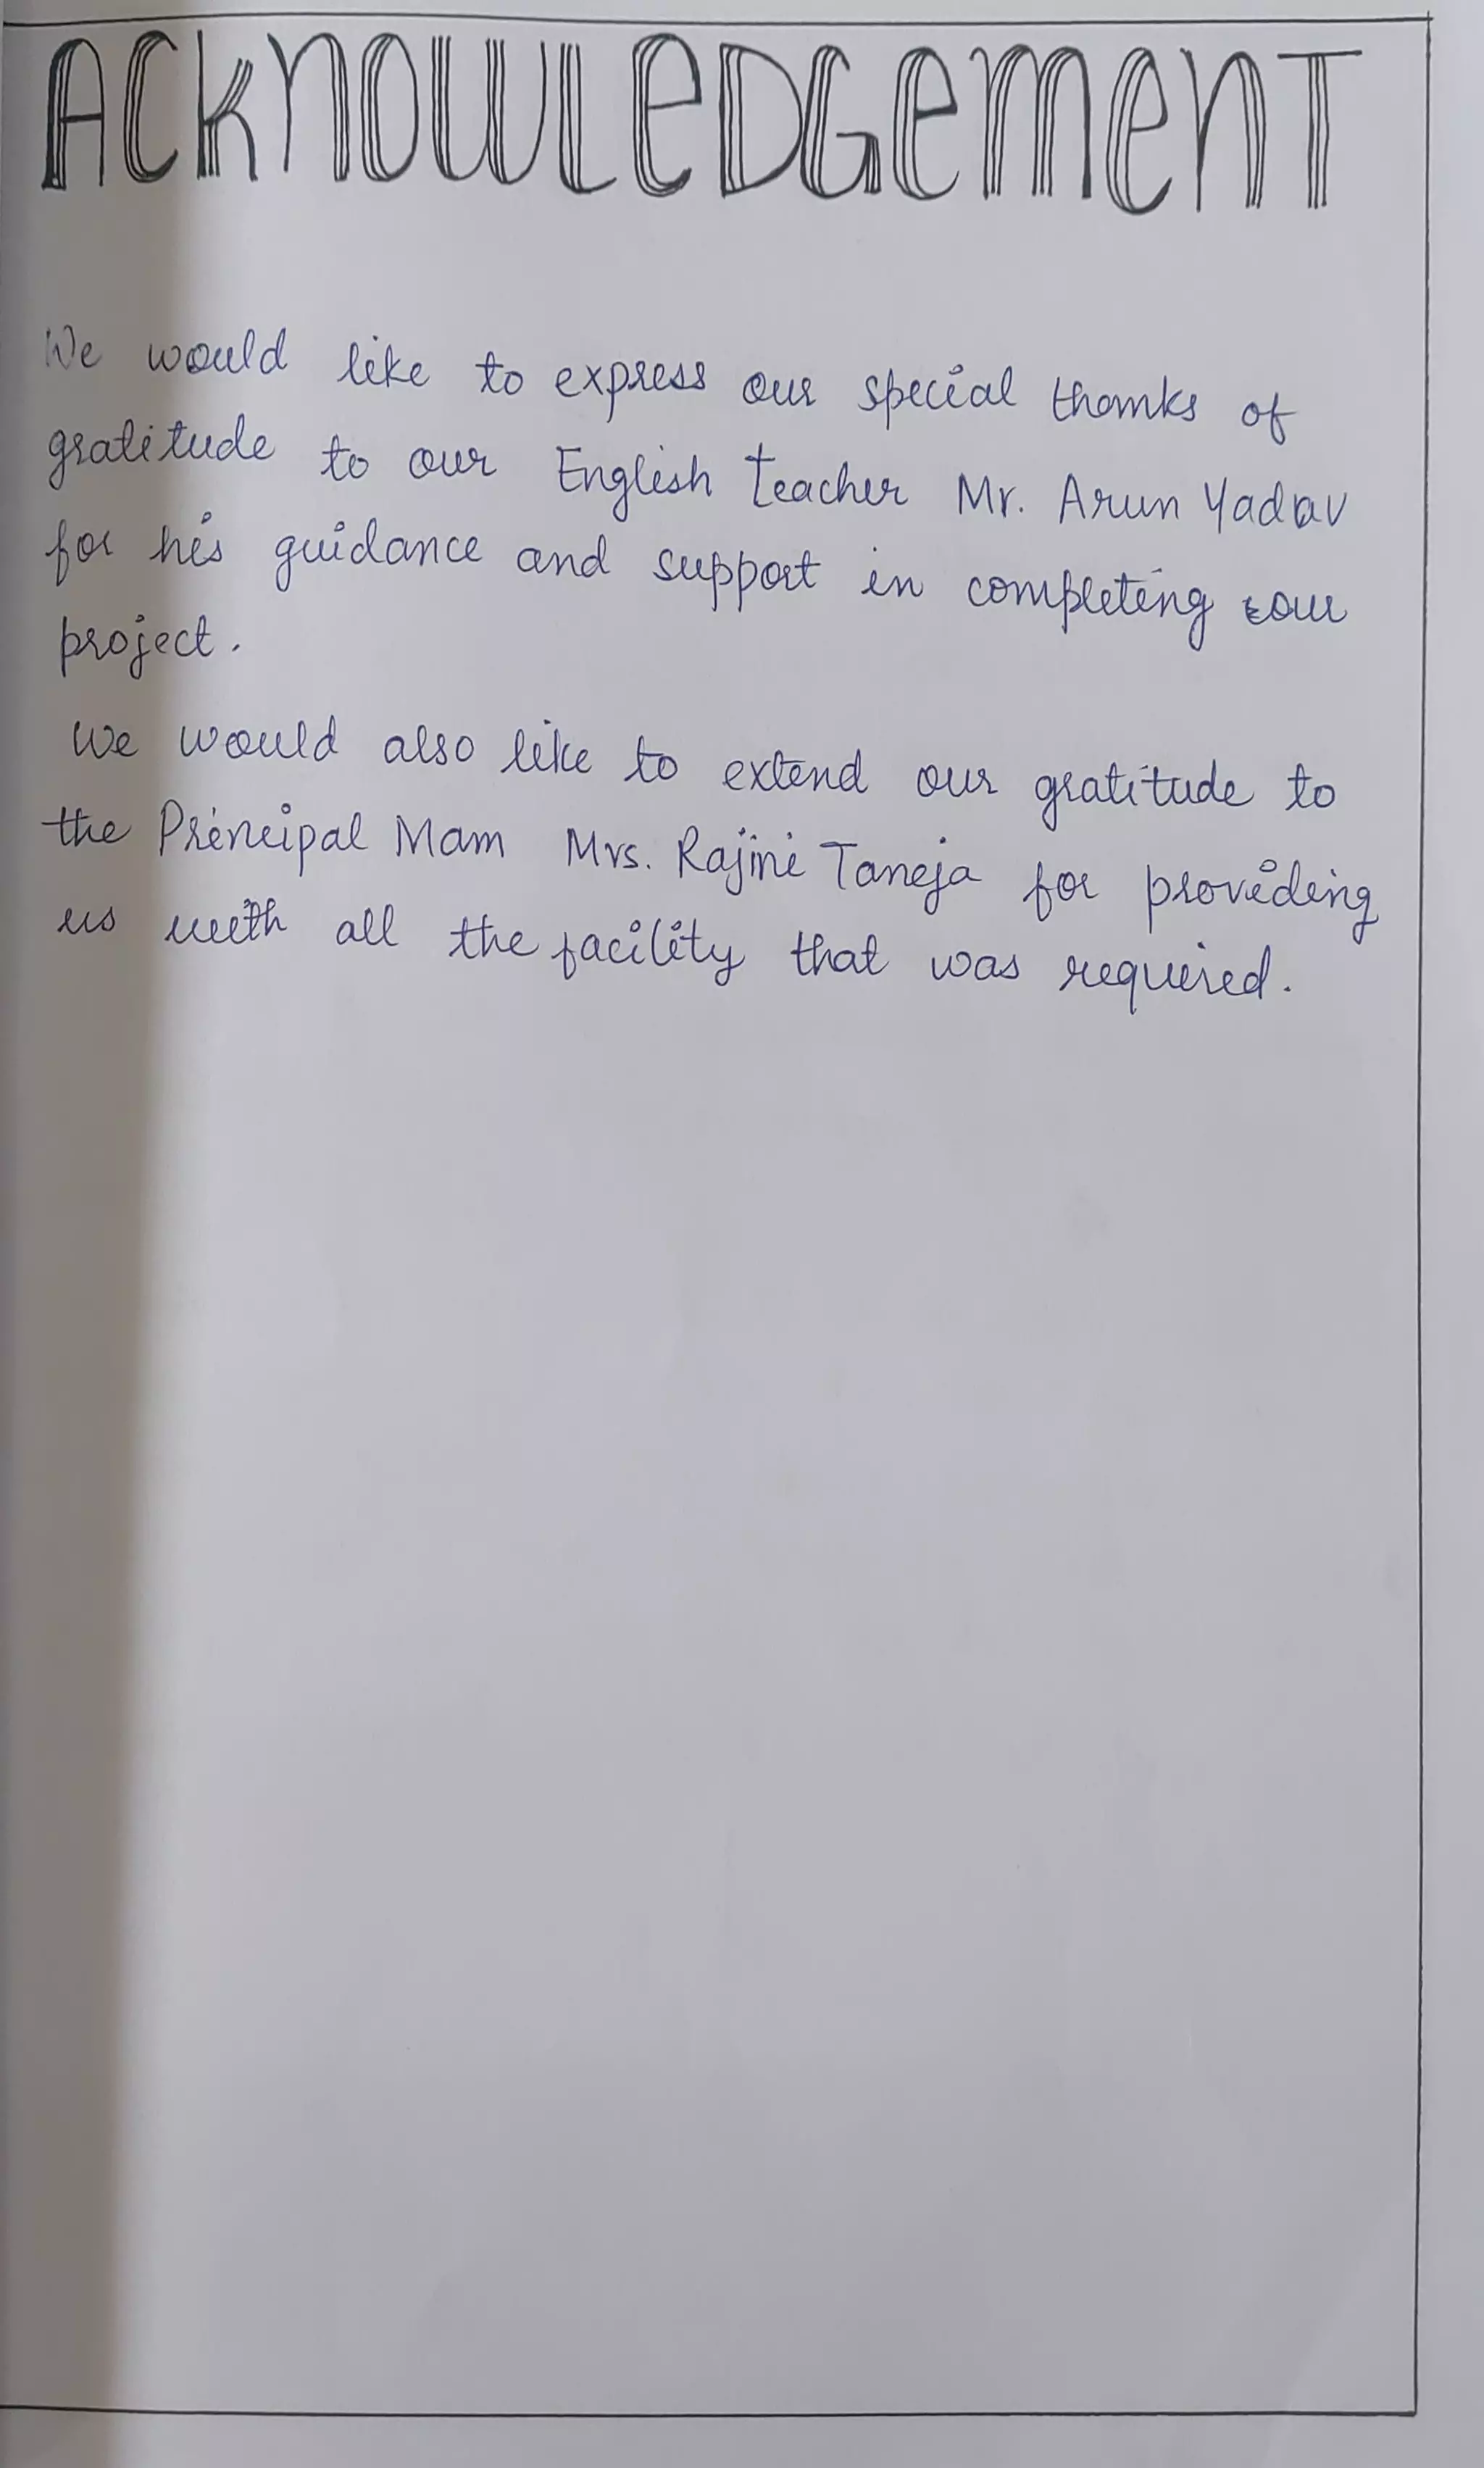 ACKNOWLEDGEMENT
We would like to express our special thanks of
gratitude to our English teacher Mr. Arun Yadav
for his guidance and support in completing our
project.
We would also like to extend our gratitude to
the Principal Mam Mrs. Rajini Taneja for providing
us with all the facility that was required.